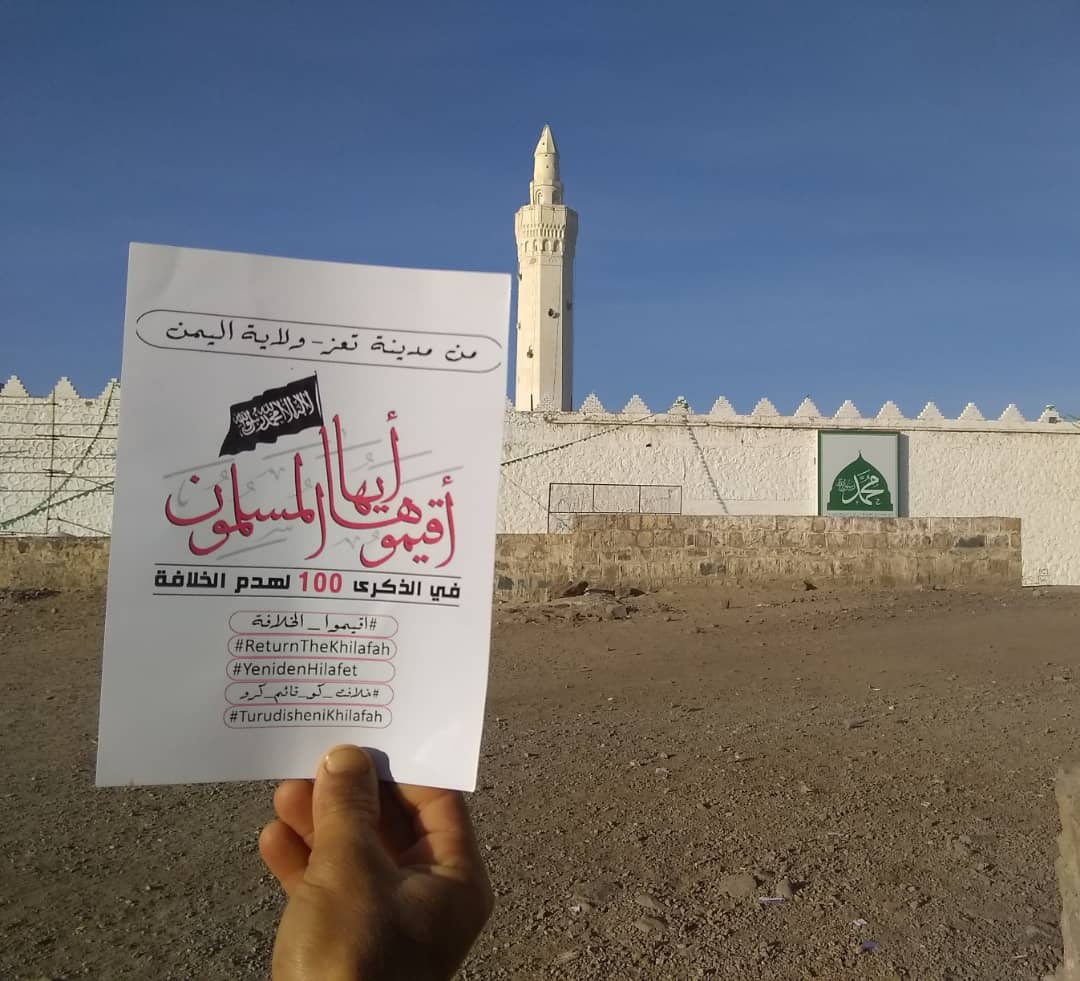 من مدينة تعز - ولاية اليمن
لا إله إلا الله محمد رسول الله
أقيموها أيها المسلمون
في الذكرى 100 لهدم الخلافة
#اقيموا_الخلافة
#ReturnTheKhilafah
#YenidenHilafet
#خلافت_کو_قائم_کرو
#TurudisheniKhilafah
محمد